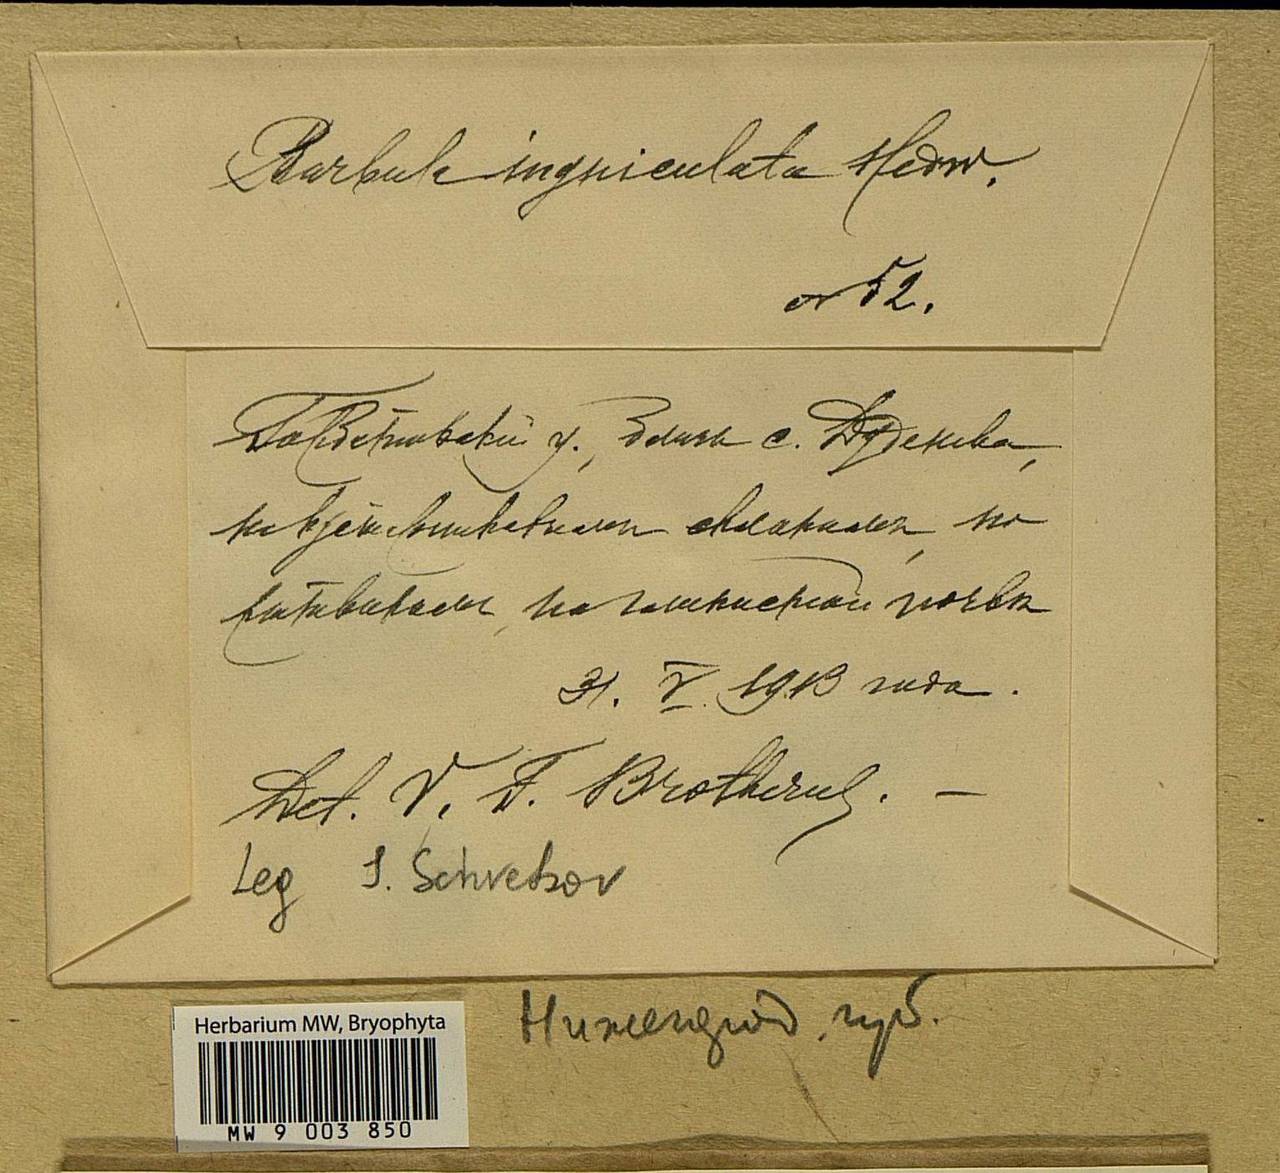 Barbula unguiculata Hedw.
№ 52.
Горбатовский у., близь с. Дуденева,
на
на глинистой почвѣ
31. V. 1913 года.
Det. V. F. Brotherus. —
Leg S. Schvetzov
Нижегород. губ.
Herbarium MW, Bryophyta
MW 9 003 850